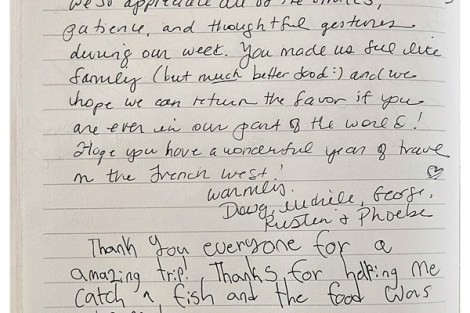 We so appreciate all of the
patience, and thoughtful gestures
during our week. You made us feel like
family (but much better food :) and we
hope we can return the favor if you
are ever in our part of the world!
Hope you have a wonderful year of travel
in the French West!
Warmly,
Doug, George,
& Phoebe
Thank you everyone for a
amazing trip! Thanks for helping me
catch a fish and the food was